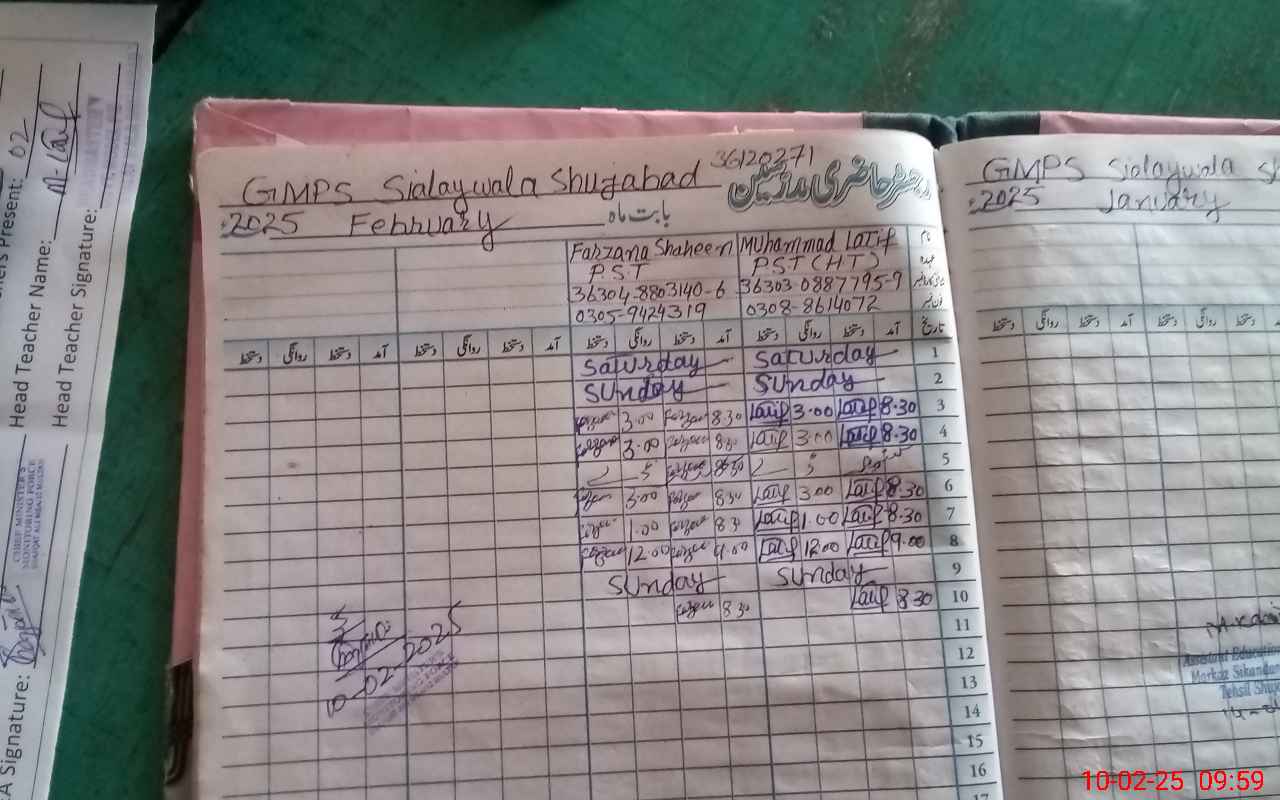 Head Teacher Name: M. Latif
Head Teacher Signature:
Present: 02
CHIEF MINISTER'S
MONITORING FORCE
A Signature:
36120271
GMPS Sialaywala Shujabad رجسٹر حاضری مدرسین
2025 February بابت ماہ
Farzana Shaheen Muhammad Latif نام
P.S.T PST (HT) عہدہ
36304-8803140-6 36303-0887795-9
0305-9424319 0308-8614072
دستخط روانگی دستخط آمد دستخط روانگی دستخط آمد دستخط روانگی دستخط آمد دستخط روانگی دستخط آمد تاریخ
Saturday Saturday 1
Sunday Sunday 2
3.00 8.30 Latif 3.00 Latif 8.30 3
3.00 8.30 Latif 3.00 Latif 8.30 4
5
3.00 8.30 Latif 3.00 Latif 8.30 6
1.00 8.30 Latif 1.00 Latif 8.30 7
12.00 9.00 Latif 12.00 Latif 9.00 8
Sunday Sunday 9
8.30 Latif 8.30 10
11
12
13
14
15
16
17
10-02-2025
GMPS Sialaywala
2025 January
دستخط روانگی دستخط آمد دستخط روانگی دستخط
Assistant Education
Markaz Sikandar
Tehsil Shuj
10-02-25 09:59